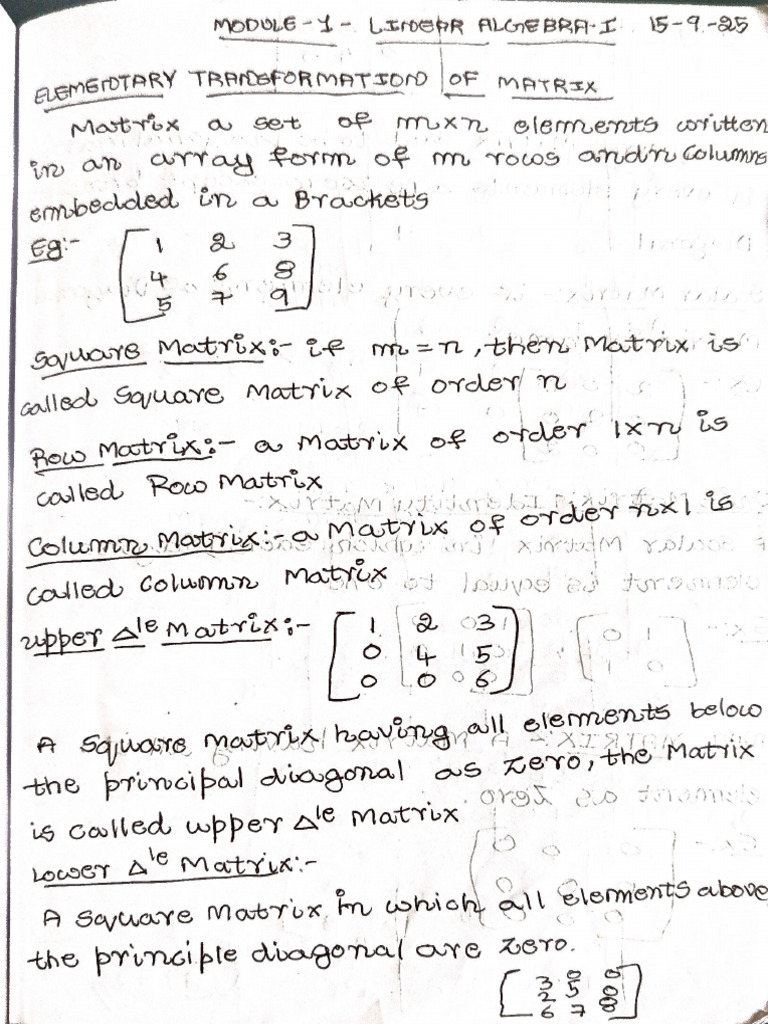 MODULE-1- LINEAR ALGEBRA-I 15-9-25
ELEMENTARY TRANSFORMATION OF MATRIX
Matrix a set of m×n elements written
in an array form of m rows and n columns
embedded in a Brackets
Eg:- [ 1 2 3
4 6 8
5 7 9 ]
Square Matrix:- if m=n, then Matrix is
called square matrix of order n
Row Matrix:- a Matrix of order 1×n is
called Row Matrix
Column Matrix:- a Matrix of order n×1 is
called column Matrix
upper Δle Matrix:- [ 1 2 3
0 4 5
0 0 6 ]
A square matrix having all elements below
the principal diagonal as zero, the Matrix
is called upper Δle Matrix
Lower Δle Matrix:-
A square Matrix in which all elements above
the principle diagonal are zero.
[ 3 0 0
2 5 0
6 7 8 ]